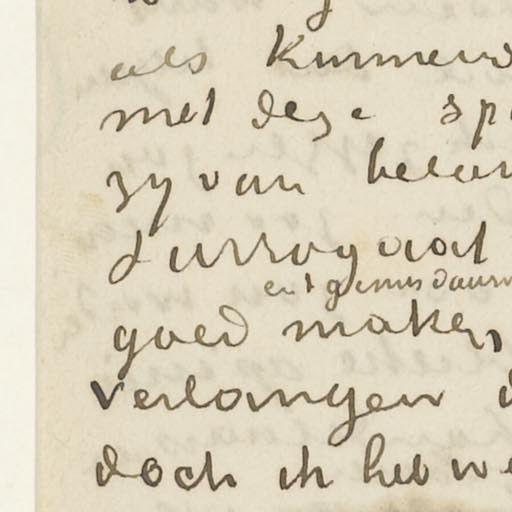 als kunnen
met deze sp
zy van belan
surrogaat
en't gemis daarv
goed maken,
verlangen d
doch ik heb we